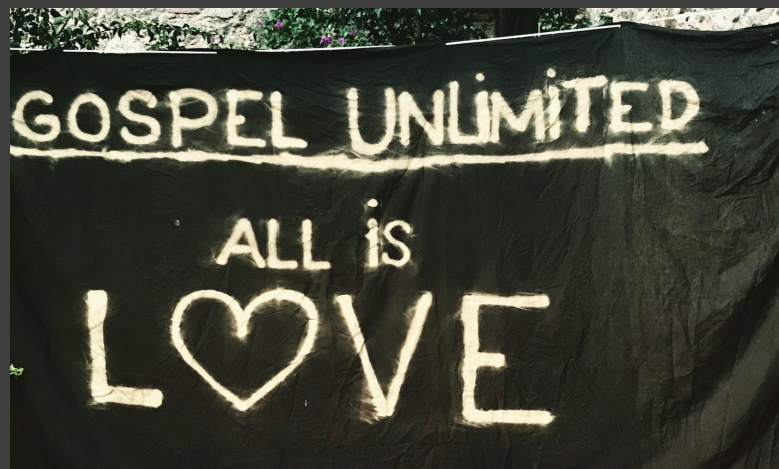 GOSPEL UNLiMiTED
ALL iS
L♡VE